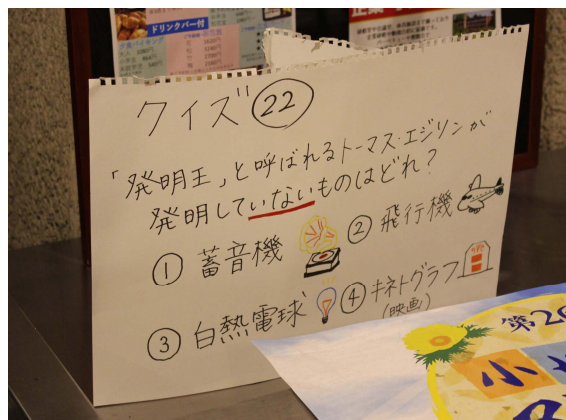 ドリンクバー付
クイズ 22
「発明王」と呼ばれるトーマス・エジソンが
発明していないものはどれ?
① 蓄音機
② 飛行機
③ 白熱電球
④ キネトグラフ
(映画)
第20
小